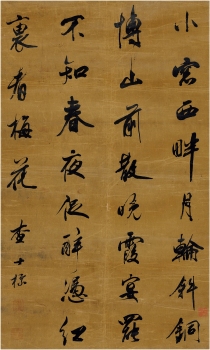 小窓西畔月輪斜銅
博山前散晚霞宴罷
不知春夜促醉憑紅
褎看梅花 查士標